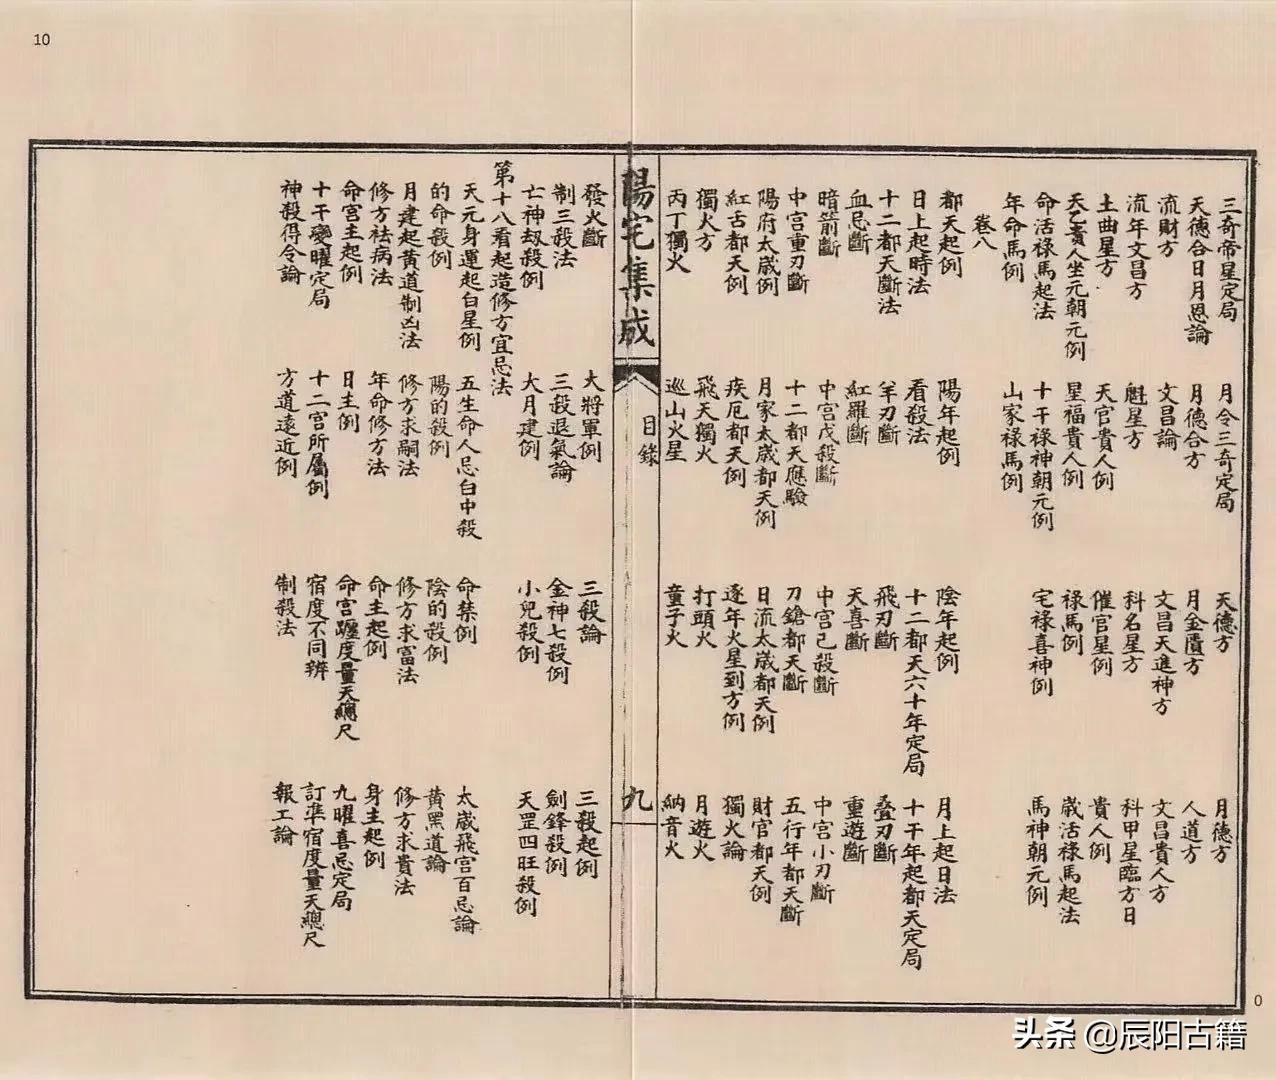 10
三奇帝星定局 月令三奇定局 天德方 月德方
天德合日月恩論 月德合方 月金匱方 人道方
流財方 文昌論 文昌天進神方 文昌貴人方
流年文昌方 魁星方 科名星方 科甲星臨方日
土曲星方 天官貴人例 催官星例 貴人例
天乙貴人坐元朝元例 星福貴人例 祿馬例 歲活祿馬起法
命活祿馬起法 十干祿神朝元例 宅祿喜神例 馬神朝元例
年命馬例 山家祿馬例
卷八
都天起例 陽年起例 陰年起例 月上起日法
日上起時法 看殺法 十二都天六十年定局 十干年起都天定局
十二都天斷法 羊刃斷 飛刃斷 叠刃斷
血忌斷 紅羅斷 天喜斷 重遊斷
暗箭斷 中宮戊殺斷 中宮己殺斷 中宮小刃斷
中宮重刃斷 十二都天應驗 刀鎗都天斷 五行年都天斷
陽府太歲例 月家太歲都天例 日流太歲都天例 財官都天例
紅舌都天例 疾厄都天例 逐年火星到方例 獨火論
獨火方 飛天獨火 打頭火 月遊火
丙丁獨火 巡山火星 童子火 納音火
陽宅集成 目錄 九
發火斷 大將軍例 三殺論 三殺起例
制三殺法 三殺退氣論 金神七殺例 劍鋒殺例
亡神刼殺例 大月建例 小兒殺例 天罡四旺殺例
第十八看起造修方宜忌法
天元身運起白星例 五生命人忌白中殺 命禁例 太歲飛宮百忌論
的命殺例 陽的殺例 陰的殺例 黃黑道論
月建起黃道制凶法 修方求嗣法 修方求富法 修方求貴法
修方祛病法 年命修方法 命主起例 身主起例
命宮主起例 日主例 命宮躔度量天總尺 九曜喜忌定局
十干變曜定局 十二宮所屬例 宿度不同辨 訂準宿度量天總尺
神殺得令論 方道遠近例 制殺法 報工論
0
头条 @辰阳古籍